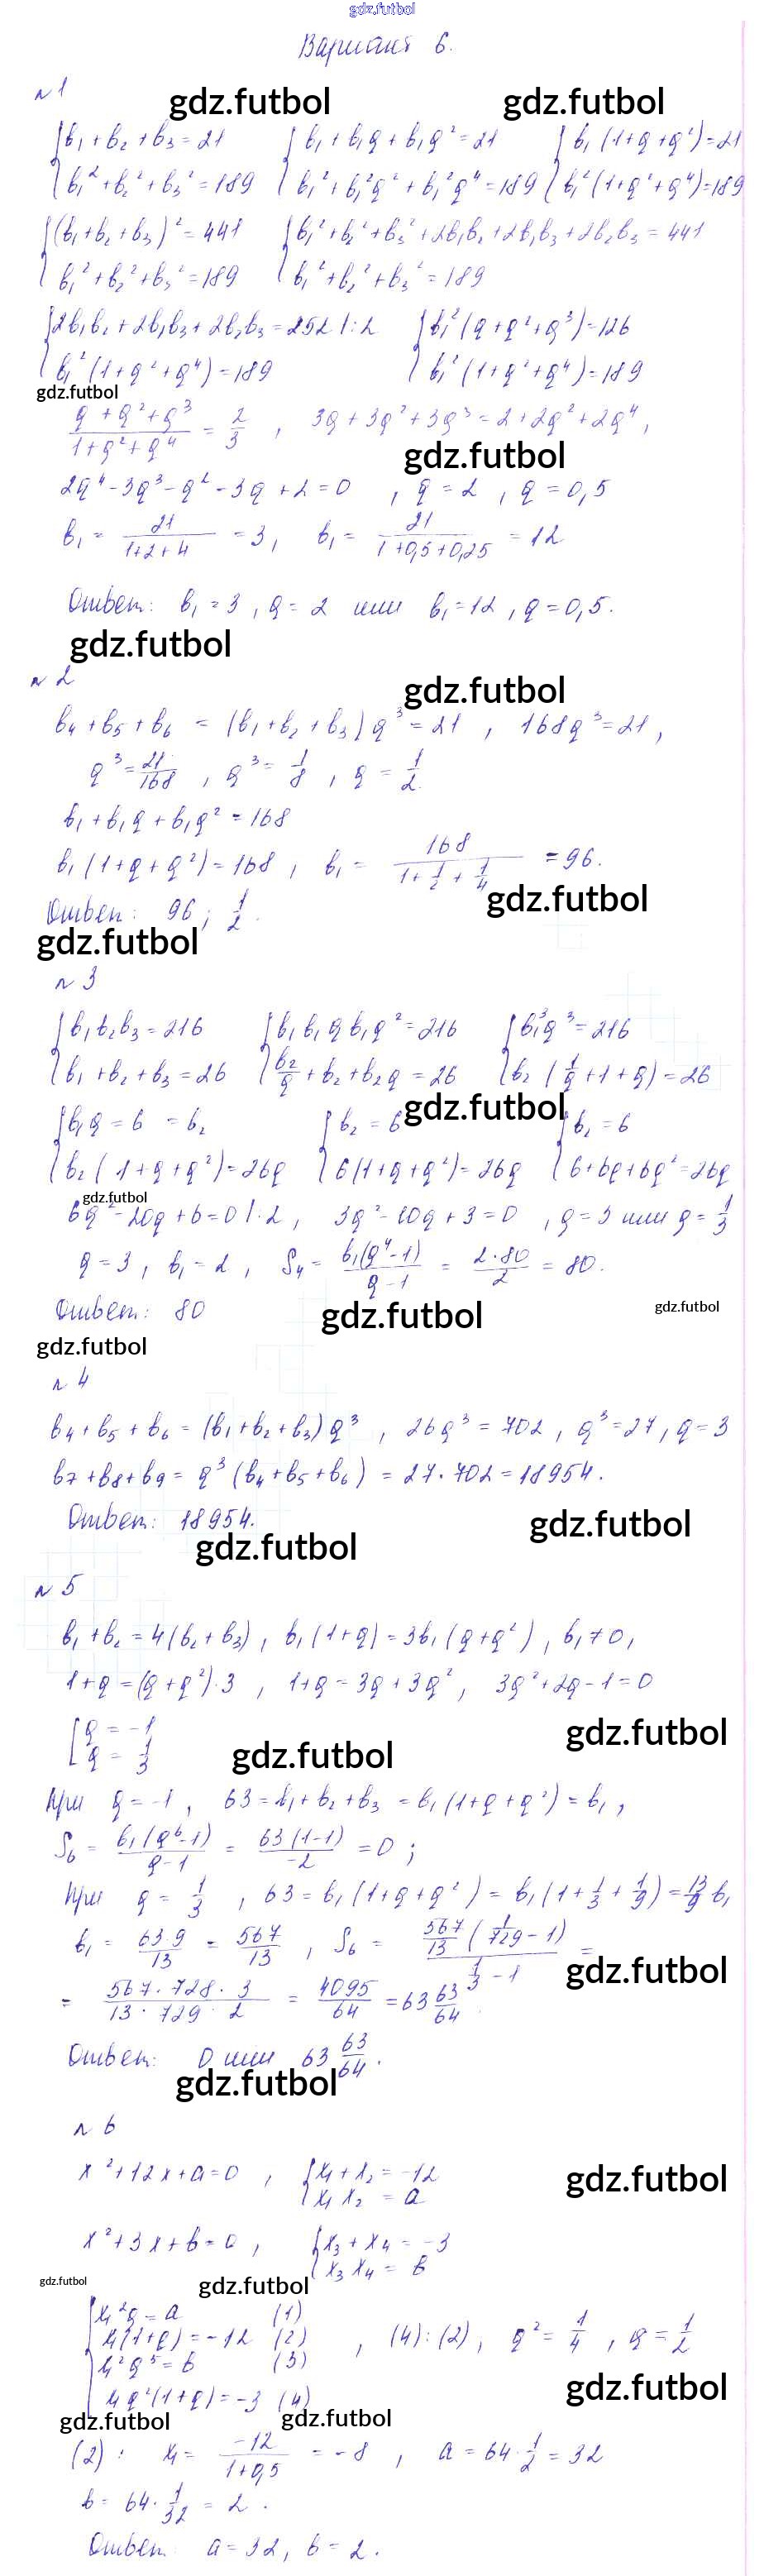 gdz.futbol
Вариант 6.
n 1
gdz.futbol gdz.futbol
{ b₁ + b₂ + b₃ = 21 { b₁ + b₁q + b₁q² = 21 { b₁(1+q+q²) = 21
{ b₁² + b₂² + b₃² = 189 { b₁² + b₁²q² + b₁²q⁴ = 189 { b₁²(1+q²+q⁴) = 189
{ (b₁+b₂+b₃)² = 441 { b₁² + b₂² + b₃² + 2b₁b₂ + 2b₁b₃ + 2b₂b₃ = 441
{ b₁² + b₂² + b₃² = 189 { b₁² + b₂² + b₃² = 189
{ 2b₁b₂ + 2b₁b₃ + 2b₂b₃ = 252 |:2 { b₁²(q+q²+q³) = 126
{ b₁²(1+q²+q⁴) = 189 { b₁²(1+q²+q⁴) = 189
gdz.futbol
(q+q²+q³)/(1+q²+q⁴) = 2/3 , 3q+3q²+3q³ = 2+2q²+2q⁴,
gdz.futbol
2q⁴ - 3q³ - q² - 3q + 2 = 0 , q = 2 , q = 0,5
b₁ = 21/(1+2+4) = 3, b₁ = 21/(1+0,5+0,25) = 12
Ответ: b₁ = 3 , q = 2 или b₁ = 12 , q = 0,5.
gdz.futbol
n 2
gdz.futbol
b₄ + b₅ + b₆ = (b₁+b₂+b₃)q³ = 21 , 168q³ = 21,
q³ = 21/168 , q³ = 1/8 , q = 1/2.
b₁ + b₁q + b₁q² = 168
b₁(1+q+q²) = 168 , b₁ = 168/(1+1/2+1/4) = 96.
gdz.futbol
Ответ: 96; 1/2.
gdz.futbol
n 3
{ b₁b₂b₃ = 216 { b₁b₁qb₁q² = 216 { b₁³q³ = 216
{ b₁ + b₂ + b₃ = 26 { b₂/q + b₂ + b₂q = 26 { b₂(1/q + 1 + q) = 26
gdz.futbol
{ b₁q = 6 = b₂ { b₂ = 6 { b₂ = 6
{ b₂(1+q+q²) = 26q { 6(1+q+q²) = 26q { 6+6q+6q² = 26q
gdz.futbol
6q² - 20q + 6 = 0 |:2, 3q² - 10q + 3 = 0 , q = 3 или q = 1/3
q = 3, b₁ = 2, S₄ = b₁(q⁴-1)/(q-1) = 2·80/2 = 80.
Ответ: 80
gdz.futbol gdz.futbol
gdz.futbol
n 4
b₄ + b₅ + b₆ = (b₁+b₂+b₃)q³ , 26q³ = 702 , q³ = 27, q = 3
b₇ + b₈ + b₉ = q³(b₄+b₅+b₆) = 27·702 = 18954.
Ответ: 18954.
gdz.futbol
gdz.futbol
n 5
b₁ + b₂ = 4(b₂+b₃), b₁(1+q) = 3b₁(q+q²), b₁ ≠ 0,
1+q = (q+q²)·3 , 1+q = 3q+3q², 3q²+2q-1 = 0
[ q = -1
[ q = 1/3
gdz.futbol
gdz.futbol
При q = -1 , 63 = b₁+b₂+b₃ = b₁(1+q+q²) = b₁,
S₆ = b₁(q⁶-1)/(q-1) = 63(1-1)/(-2) = 0 ;
При q = 1/3 , 63 = b₁(1+q+q²) = b₁(1+1/3+1/9) = 13/9 b₁
b₁ = 63·9/13 = 567/13 , S₆ = 567/13(1/729-1)/(1/3-1) =
gdz.futbol
= 567·728·3/(13·729·2) = 4095/64 = 63 63/64.
Ответ: 0 или 63 63/64.
gdz.futbol
n 6
x²+12x+a=0 , { x₁+x₂ = -12
{ x₁x₂ = a
gdz.futbol
x²+3x+b=0 , { x₃+x₄ = -3
{ x₃x₄ = b
gdz.futbol gdz.futbol
{ x₁²q = a (1)
{ x₁(1+q) = -12 (2) , (4):(2), q² = 1/4 , q = 1/2
{ x₁²q⁵ = b (3)
{ x₁q²(1+q) = -3 (4)
gdz.futbol
gdz.futbol gdz.futbol
(2): x₁ = -12/(1+0,5) = -8 , a = 64·1/2 = 32
b = 64·1/32 = 2.
Ответ: a = 32, b = 2.